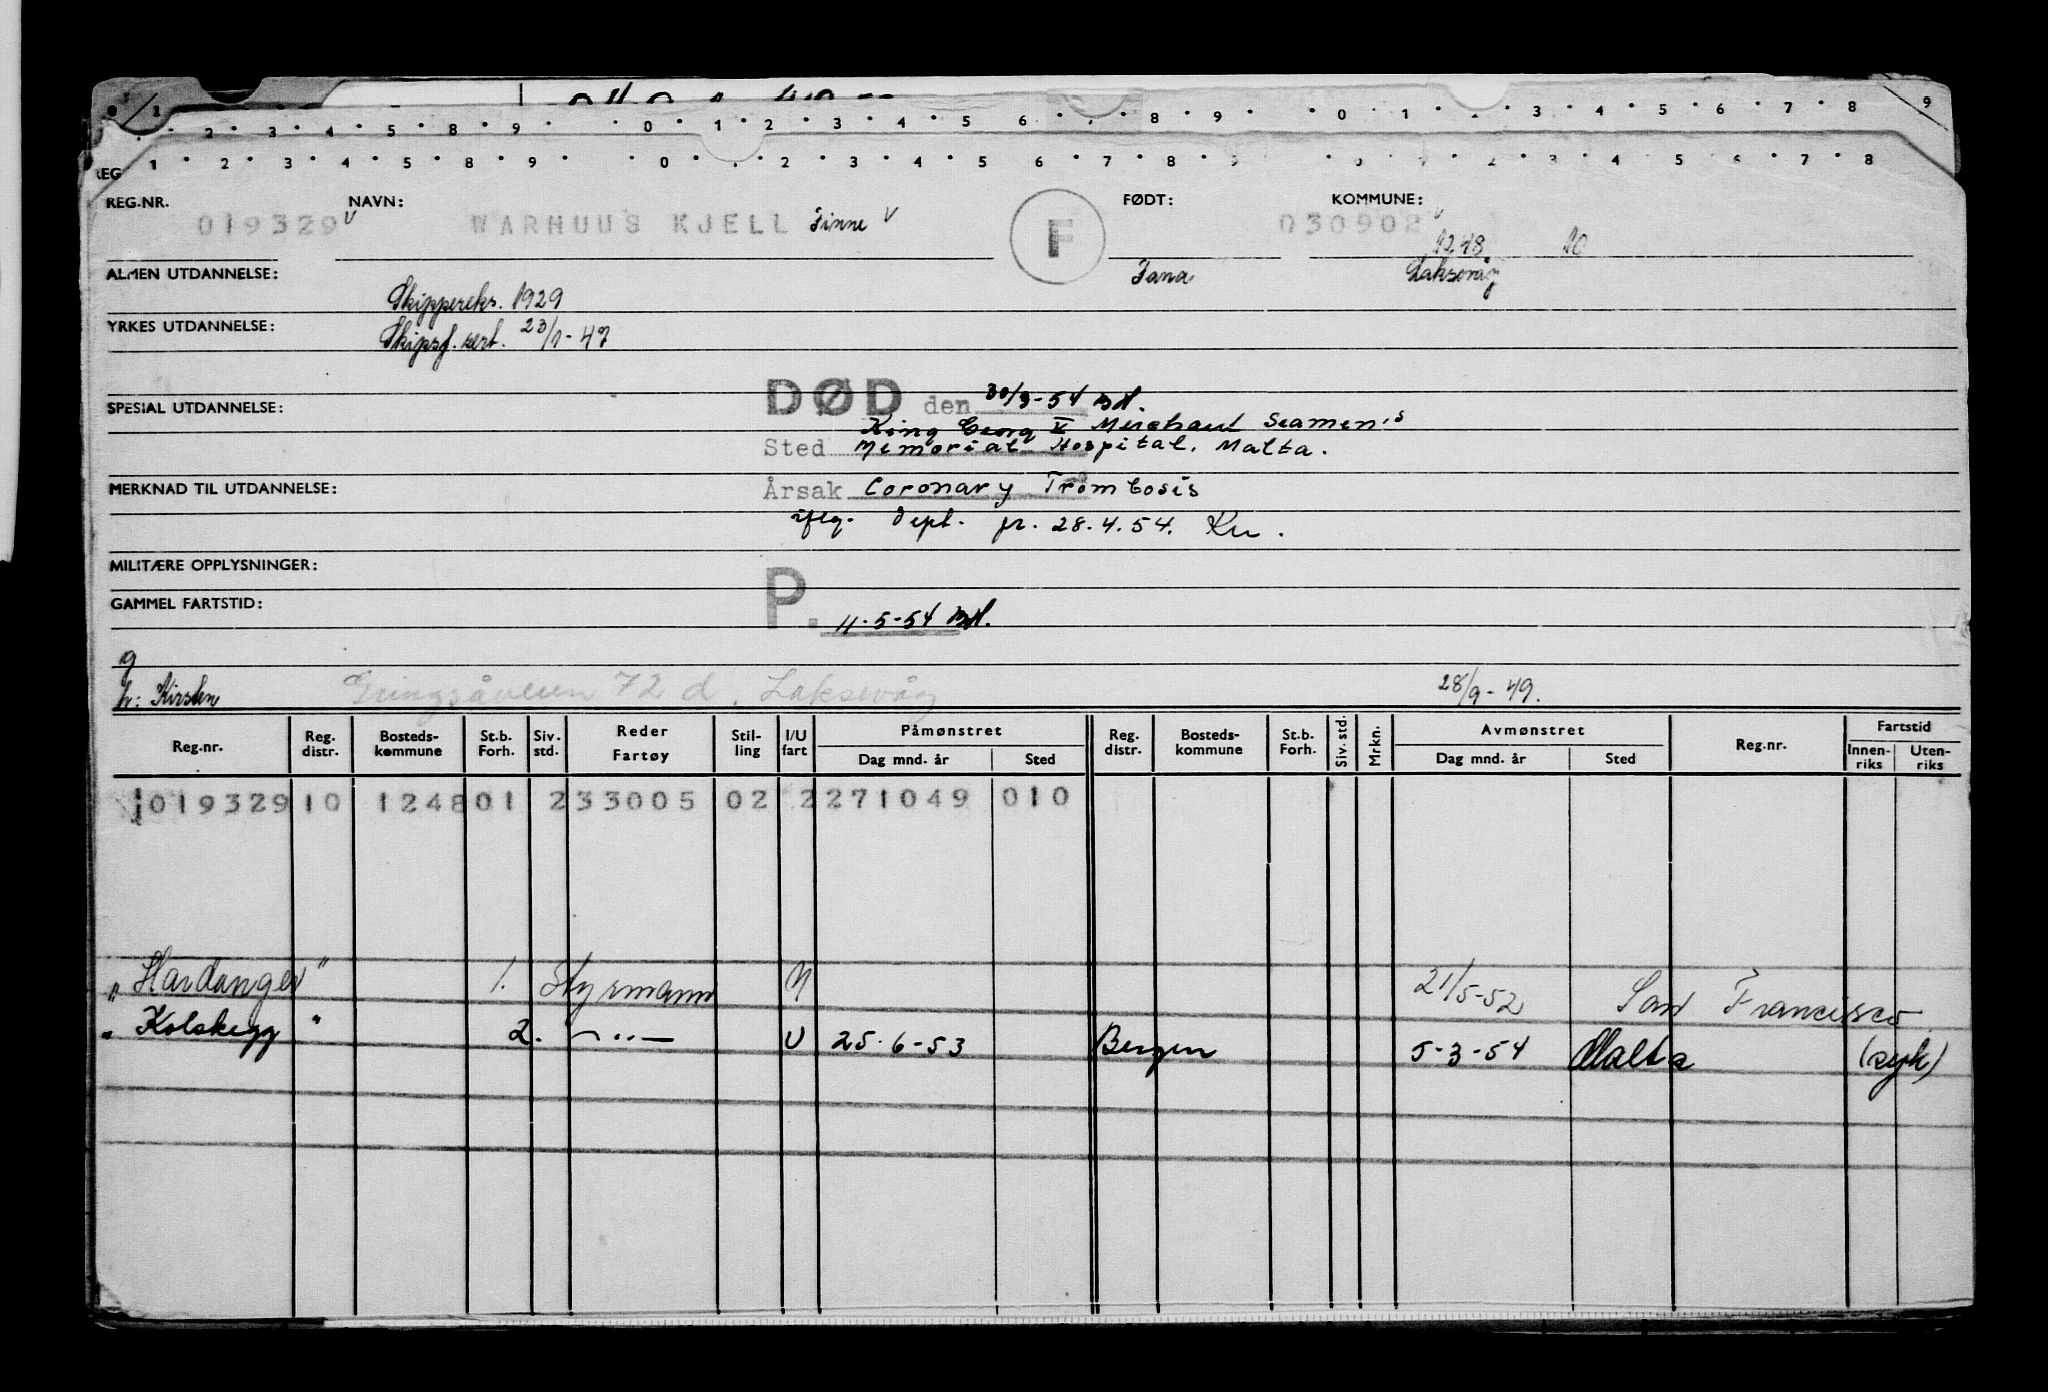 1 2 3 4 5 8 9 0 1 2 3 4 5 6 8 9 0 1 3 4 5 6 7 8 9
1 2 3 4 5 8 9 0 2 3 4 5 6 7 8 9 2 3 4 5 6 7 8
REG.NR. NAVN: FØDT: KOMMUNE:
019329 V WARHUUS KJELL Finne V F 030902 V
1248 10
ALMEN UTDANNELSE: Tana Laksevåg
Skippereks. 1929
YRKES UTDANNELSE: Skipsf. sert. 23/1-47
DØD den 30/3-54 BH.
SPESIAL UTDANNELSE: King Georg V Merchant Seamen's
Sted Memorial Hospital, Malta.
MERKNAD TIL UTDANNELSE: Årsak Coronary Trombosis
iflg. Dept. fr. 28.4.54. Kn.
MILITÆRE OPPLYSNINGER:
GAMMEL FARTSTID: P. 11-5-54 BH.
g
h: Kirsten 72 d, Laksevåg 28/9-49.
Reg.nr. Reg. distr. Bosteds-kommune St.b. Forh. Siv. std. Reder Fartøy Stil-ling I/U fart Påmønstret Dag mnd. år Sted Reg. distr. Bosteds-kommune St.b. Forh. Siv. std. Mrkn. Avmønstret Dag mnd. år Sted Reg.nr. Fartstid Innen-riks Uten-riks
019329 10 1248 01 2 33005 02 2 271049 010
„Hardanger" 1. Styrmann U 21/5-52 San Francisco
„Kolskegg" 2. —"— U 25-6-53 Bergen 5-3-54 Malta (syk)